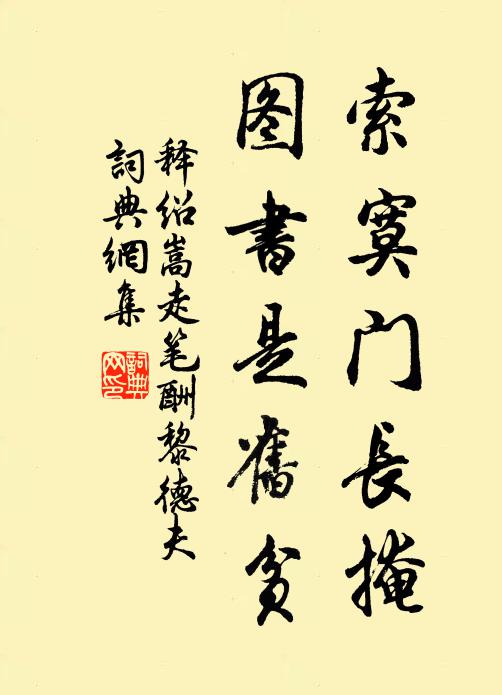 索寞门長掩
图書是舊貧
释绍嵩走笔酬黎德夫
詞典網集
詞典网印